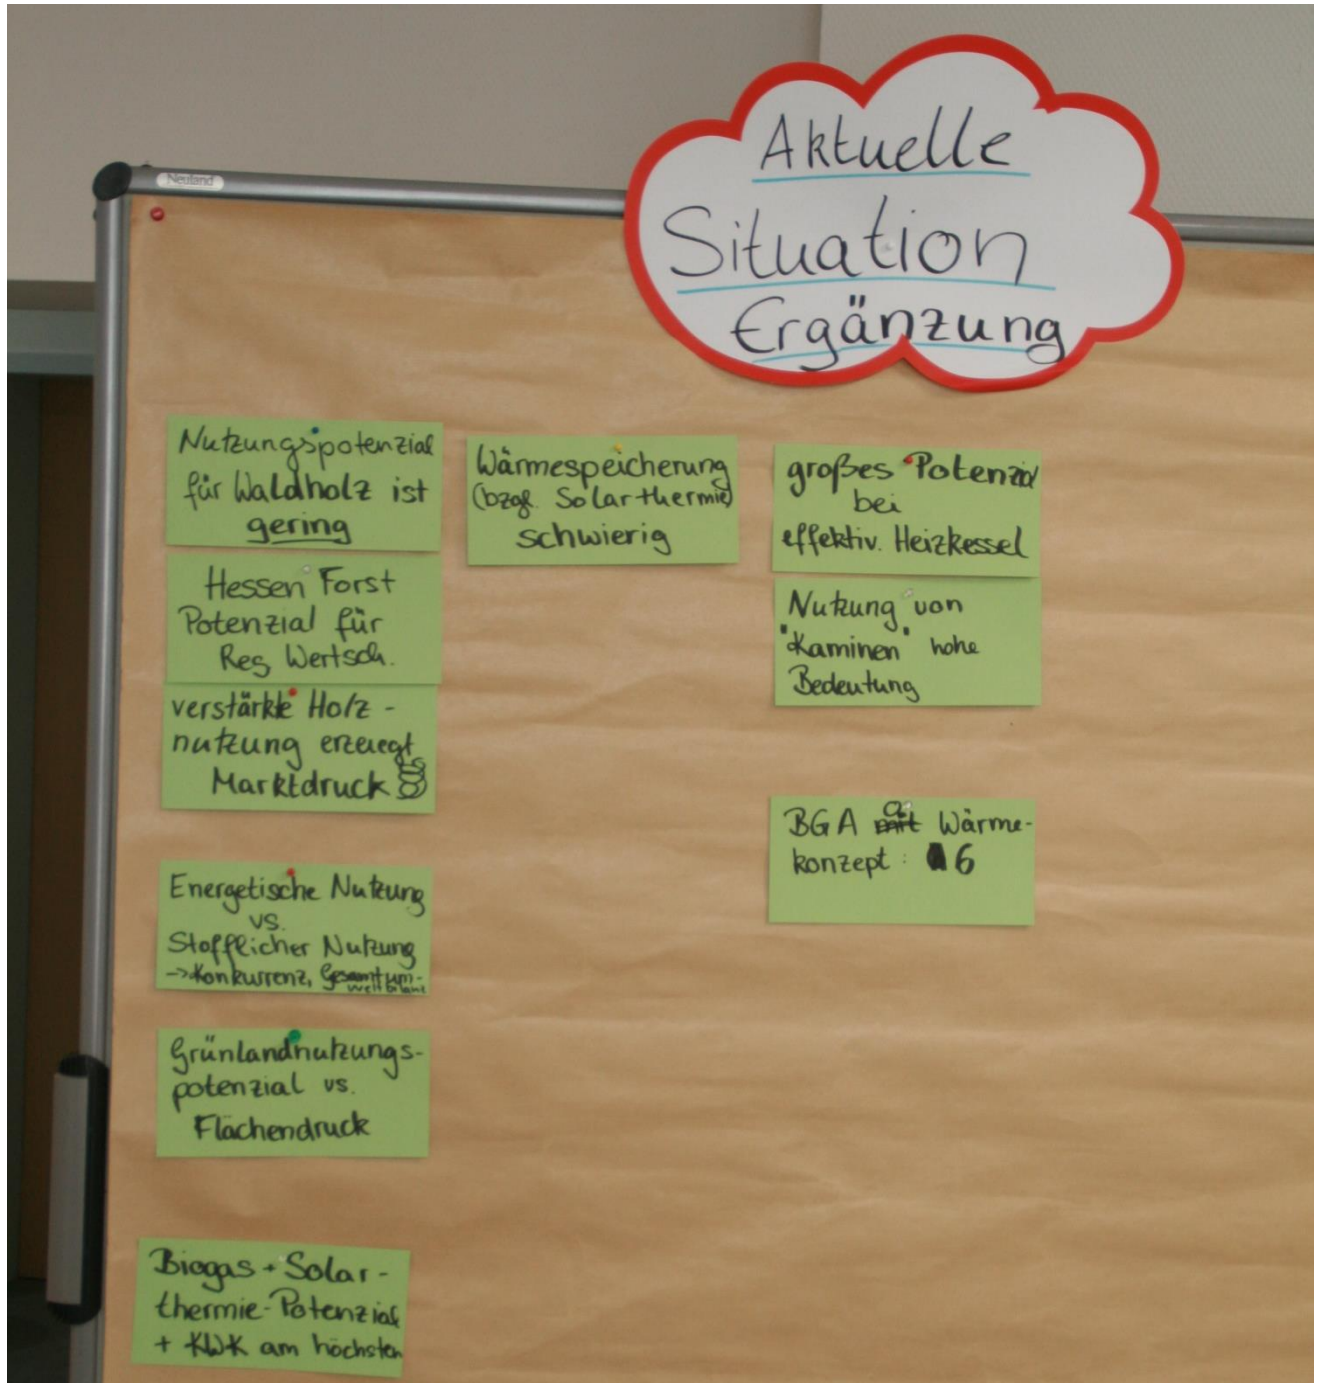 Neuland
Aktuelle
Situation
Ergänzung
Nutzungspotenzial
für Waldholz ist
gering
Hessen Forst
Potenzial für
Reg Wertsch.
verstärkte Holz-
nutzung erzeugt
Marktdruck
Energetische Nutzung
vs.
Stofflicher Nutzung
-> Konkurrenz, Gesamtum-
weltbilanz
Grünlandnutzungs-
potenzial vs.
Flächendruck
Biogas + Solar-
thermie-Potenzial
+ KWK am höchsten
Wärmespeicherung
(bzgl. Solarthermie)
schwierig
großes Potenzial
bei
effektiv. Heizkessel
Nutzung von
"Kaminen" hohe
Bedeutung
BGA Wärme-
konzept: 6